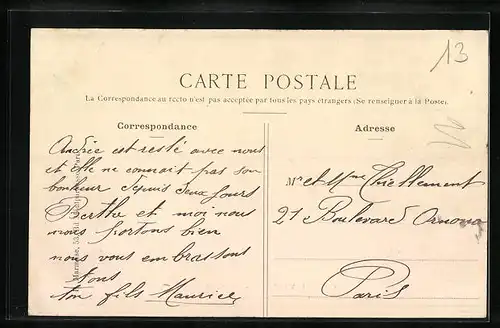 13
CARTE POSTALE
La Correspondance au recto n'est pas acceptée par tous les pays étrangers (Se renseigner à la Poste).
Correspondance
Andrée est resté avec nous
et elle ne connait pas son
bonheur depuis deux jours
Berthe et moi nous
nous portons bien
nous vous embrassons
tous
ton fils Maurice
Adresse
Mr et Mme
21 Boulevard Ornano
Paris